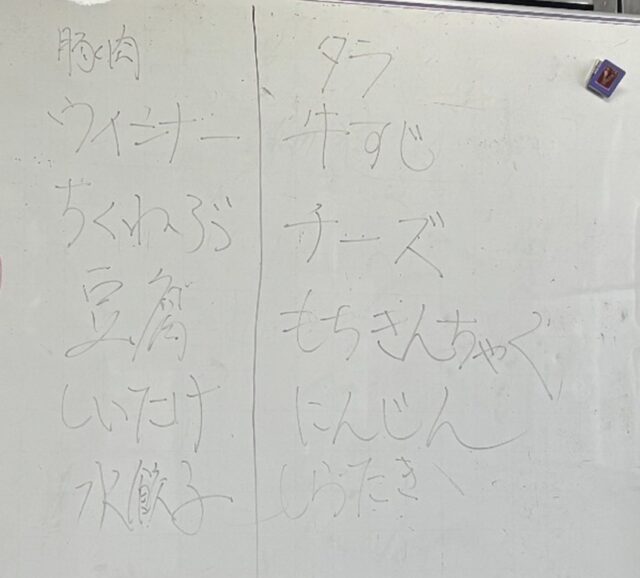 豚肉
ウインナー
ちくわぶ
豆腐
しいたけ
水餃子
タラ
牛すじ
チーズ
もちきんちゃく
にんじん
しらたき